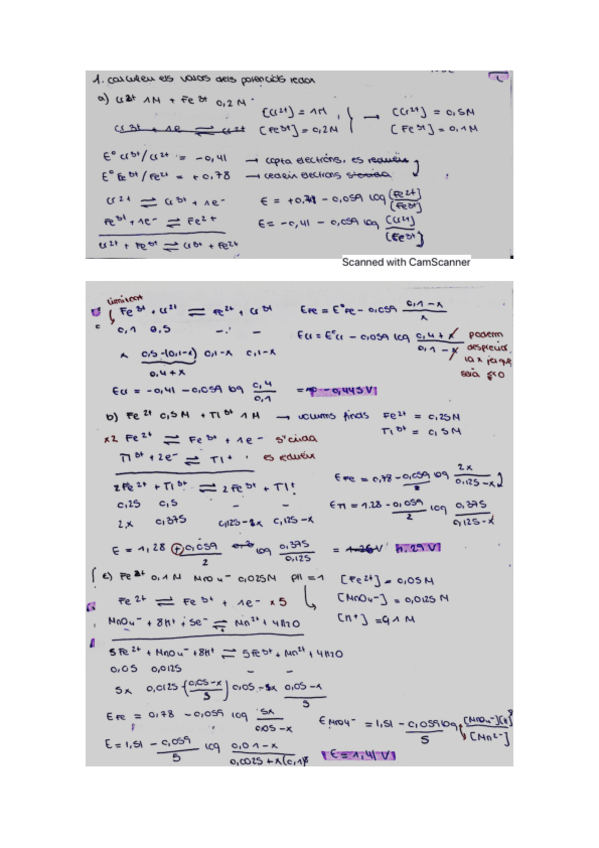 1. calculeu els valors dels potencials redox
a) Cr2+ 1M + Fe3+ 0,2 M.
[Cr2+] = 1M , → [Cr2+] = 0,5M
Cr3+ + 1e ⇌ Cr2+ [Fe3+] = 0,2M [Fe3+] = 0,1M
E° Cr3+/Cr2+ = -0,41 → capta electrons, es redueix
E° Fe3+/Fe2+ = +0,78 → cedeix electrons s'oxida
Cr2+ ⇌ Cr3+ + 1e- E = +0,78 - 0,059 log [Fe2+]/[Fe3+]
Fe3+ + 1e- ⇌ Fe2+ E = -0,41 - 0,059 log [Cr2+]/[Cr3+]
Cr2+ + Fe3+ ⇌ Cr3+ + Fe2+
Scanned with CamScanner
limitant
Fe3+ + Cr2+ ⇌ Fe2+ + Cr3+ EFe = E°Fe - 0,059 0,1-x/x
0,1 0,5 - - ECr = E°Cr - 0,059 log 0,4+x/0,1-x podem
despreciar
x 0,5-(0,1-x) 0,1-x 0,1-x la x ja que
0,4+x
ECr = -0,41 - 0,059 log 0,4/0,1 = -0,445 V
b) Fe2+ 0,5M + Tl3+ 1M → volums finals Fe2+ = 0,25M
Tl3+ = 0,5M
x2 Fe2+ ⇌ Fe3+ + 1e- s'oxida
Tl3+ + 2e- ⇌ Tl+ es redueix
2Fe2+ + Tl3+ ⇌ 2Fe3+ + Tl+ EFe = 0,78 - 0,059 log 2x/0,125-x
0,25 0,5 - - ETl = 1,28 - 0,059/2 log 0,375/0,125-x
2x 0,375 0,125-2x 0,125-x
E = 1,28 + 0,059/2 log 0,375/0,125 = 1,26V 1,29 V
c) Fe2+ 0,1M MnO4- 0,025M pH=1 [Fe2+] = 0,05M
Fe2+ ⇌ Fe3+ + 1e- x5 [MnO4-] = 0,0125M
MnO4- + 8H+ + 5e- ⇌ Mn2+ + 4H2O [H+] = 0,1M
5Fe2+ + MnO4- + 8H+ ⇌ 5Fe3+ + Mn2+ + 4H2O
0,05 0,0125 - -
5x 0,0125-(0,05-x/5) 0,05-5x 0,05-x/5
EFe = 0,78 - 0,059 log 5x/0,05-x EMnO4- = 1,51 - 0,059/5 log [MnO4-][H]8/[Mn2-]
E = 1,51 - 0,059/5 log 0,01-x/0,0025+x(0,1)8 E = 1,41 V